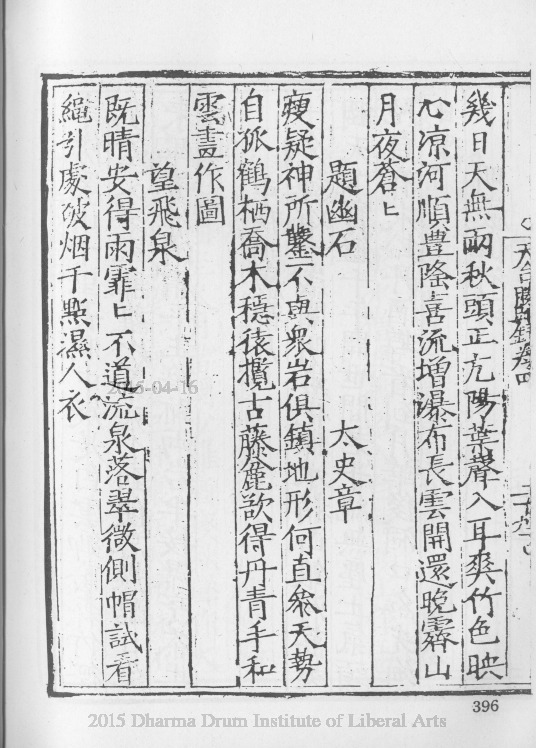 天台勝蹟錄卷四
幾日天無雨秋頭正亢陽葉聲入耳爽竹色映
心凉河順豊隆喜流增瀑布長雲開還晚霽山
月夜蒼〻
題幽石
太史章
瘦疑神所鑿不與衆岩俱鎮地形何直參天勢
自孤鶴栖喬木穩猿攬古藤麁欲得丹青手和
雲畫作圖
望飛泉
既晴安得雨霏〻不道流泉落翠微側帽試看
繩引處破烟千點濕人衣
16-04-16
396
2015 Dharma Drum Institute of Liberal Arts